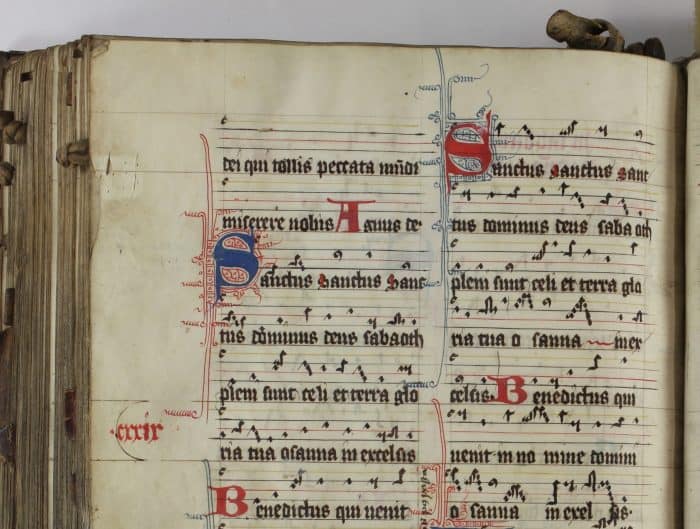 dei qui tollis peccata mūdi
miserere nobis Agnus de
Sanctus Sanctus Sanc
tus dominus deus sabaoth
pleni sunt celi et terra glo
ria tua osanna in excelsis
Benedictus qui uenit
cxxix
Sanctus Sanctus Sanc
tus dominus deus saba oth
pleni sunt celi et terra glo
ria tua o sanna in ex
celsis Benedictus qui
uenit in no mine domini
o sanna in excel sis